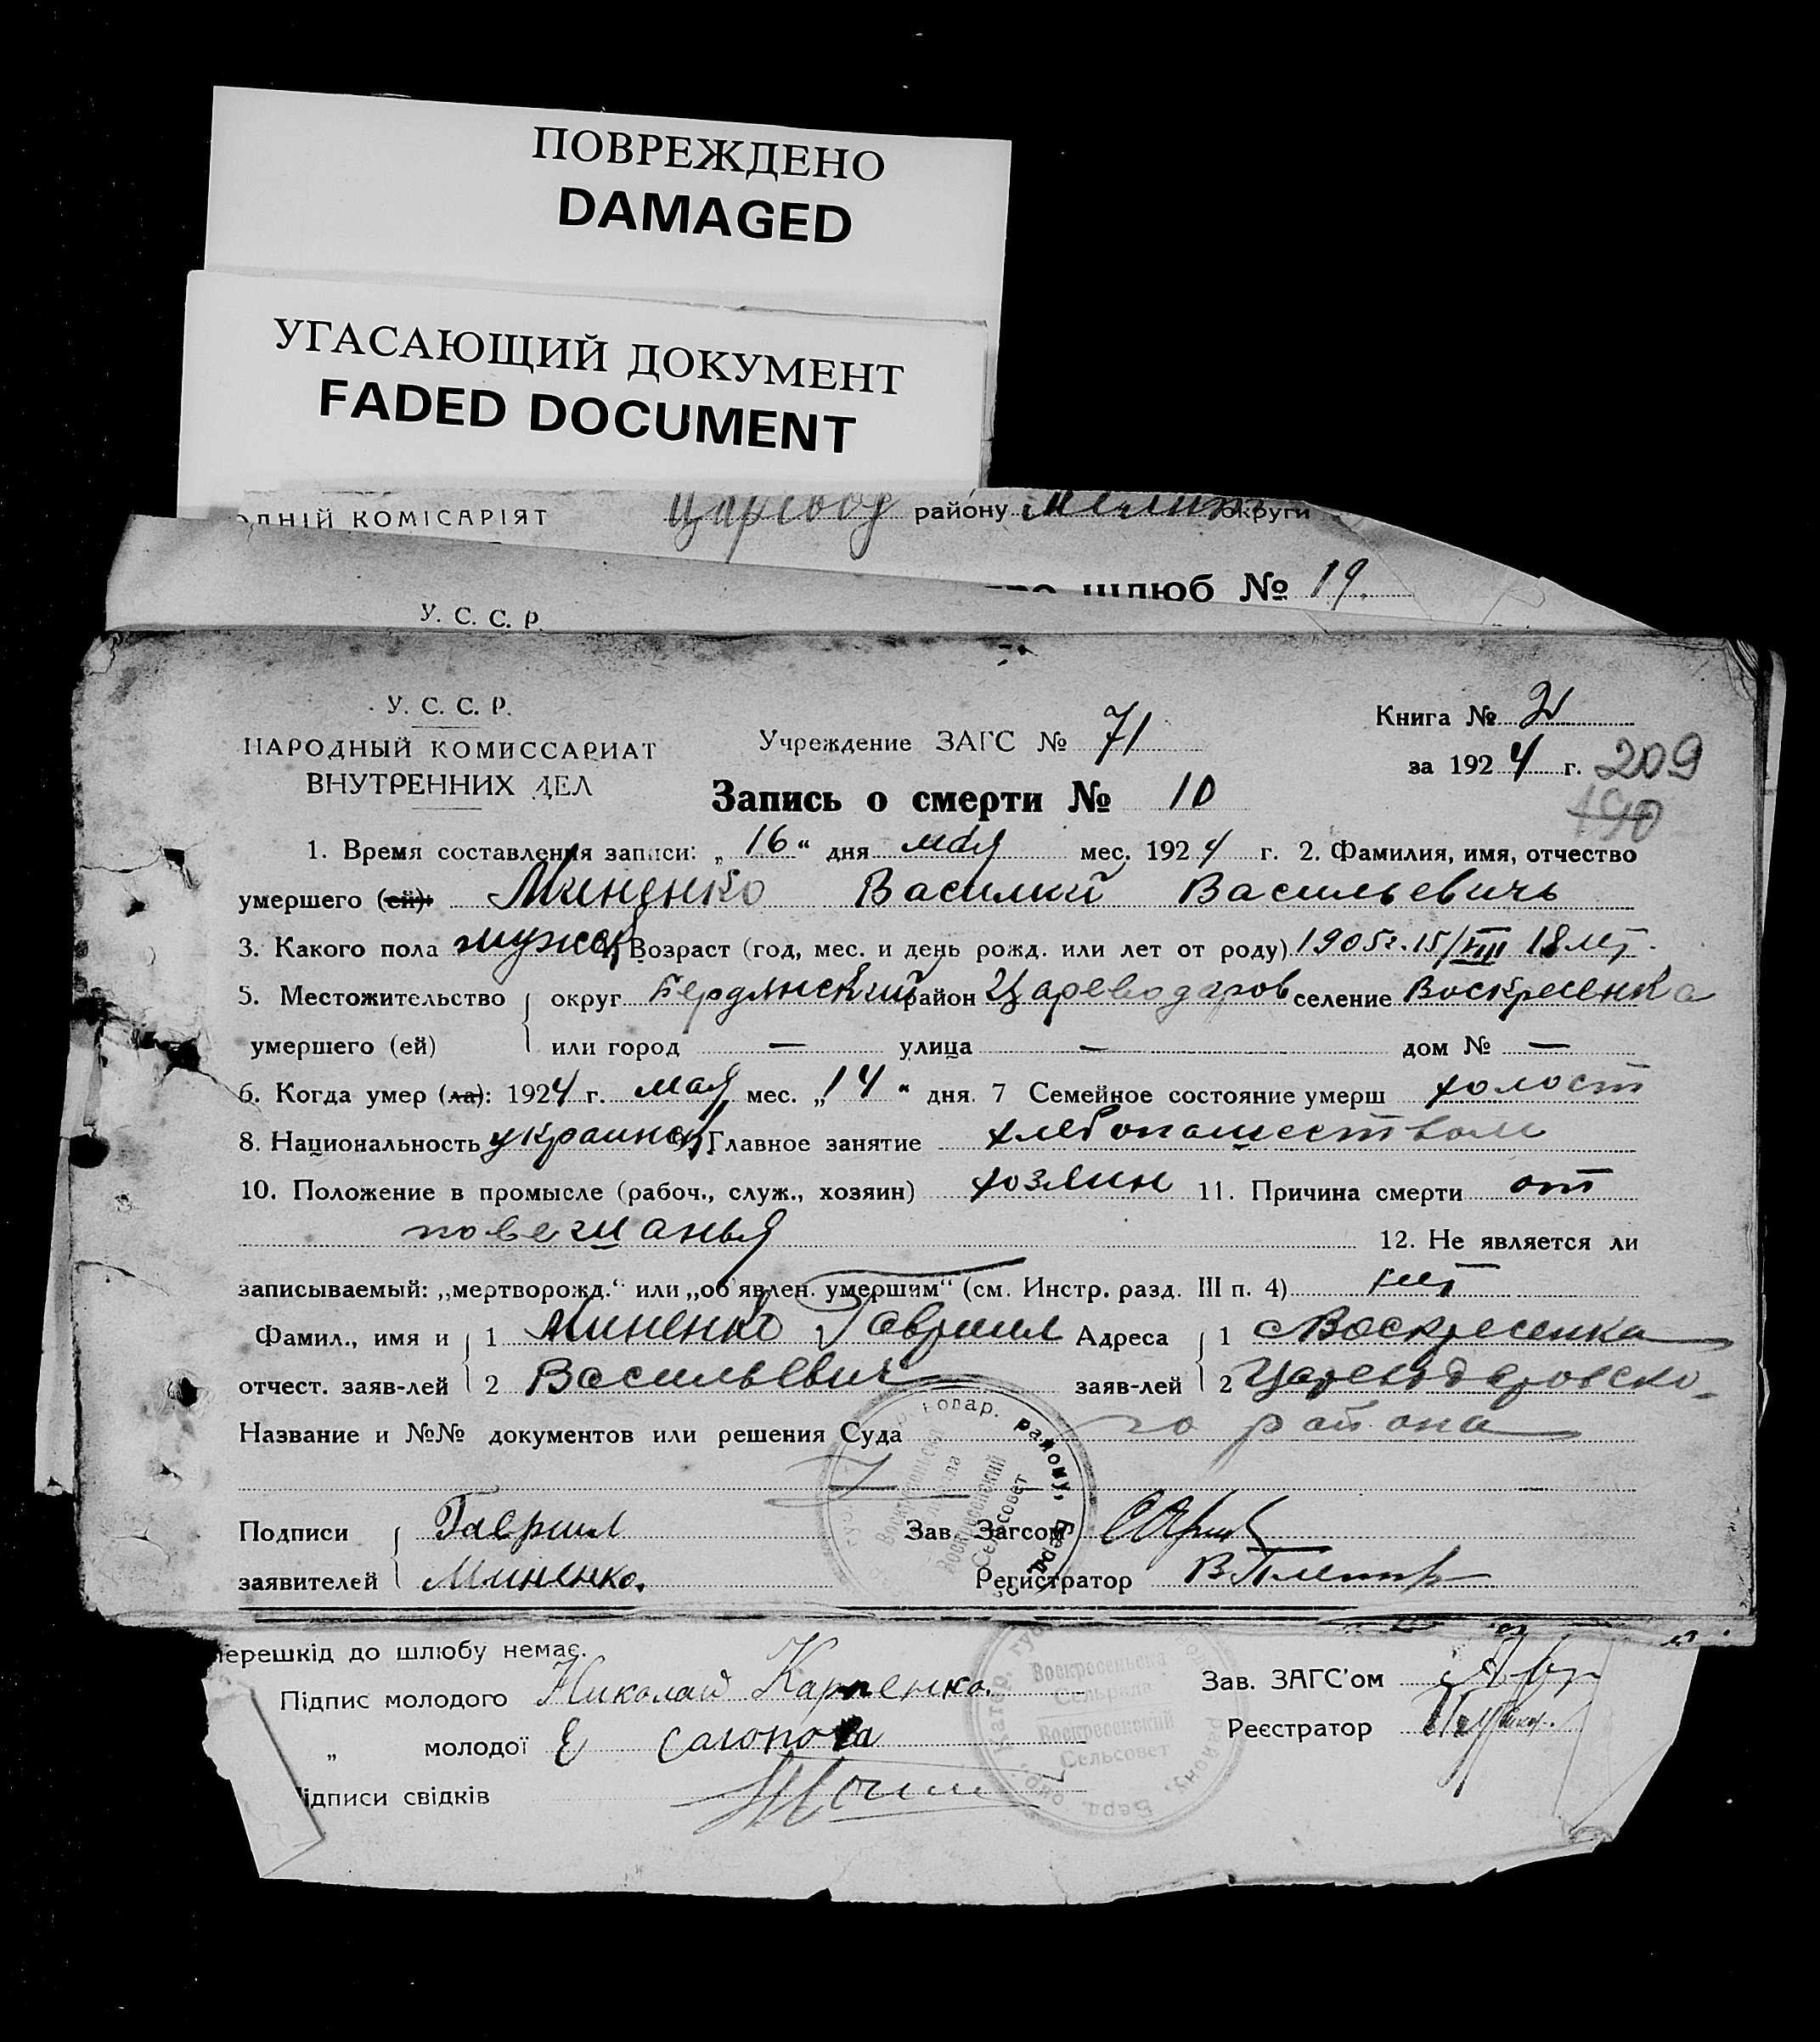 ПОВРЕЖДЕНО
DAMAGED
УГАСАЮЩИЙ ДОКУМЕНТ
FADED DOCUMENT
ОДНІЙ КОМІСАРІЯТ Царевод району округи
шлюб № 19.
У. С. С. Р.
У. С. С. Р.
НАРОДНЫЙ КОМИССАРИАТ
ВНУТРЕННИХ ДЕЛ
Учреждение ЗАГС № 71
Книга № 2
за 1924 г. 209
190
Запись о смерти № 10
1. Время составления записи: „16“ дня мая мес. 1924 г. 2. Фамилия, имя, отчество
умершего (ей): Миненко Василий Васильевичь
3. Какого пола мужск Возраст (год, мес. и день рожд. или лет от роду) 1905г. 15/VIII 18 лет.
5. Местожительство округ Бердянский район Цареводаров селение Воскресенка
умершего (ей) или город — улица — дом № —
6. Когда умер (ла): 1924 г. мая мес. „14“ дня. 7 Семейное состояние умерш холост
8. Национальность украинск Главное занятие хлебопашеством
10. Положение в промысле (рабоч., служ., хозяин) хозяин 11. Причина смерти от
повешанья 12. Не является ли
записываемый: „мертворожд.“ или „об'явлен. умершим“ (см. Инстр. разд. III п. 4) нет
Фамил., имя и 1 Миненко Гавриил Адреса 1 Воскресенка
отчест. заяв-лей 2 Васильевич заяв-лей 2 Цареводаровско-
Название и №№ документов или решения Суда го района
район у, Берд.
Воскресенский
Сельсовет
Подписи Гавриил Зав. Загсом
заявителей Миненко. Регистратор
Перешкід до шлюбу немає.
Підпис молодого Николай Карпенко. Зав. ЗАГС'ом
„ молодої Е Реєстратор
Підписи свідків
Воскресеньска
Сельрада
Воскресенский
Сельсовет
району, Берд. окр.